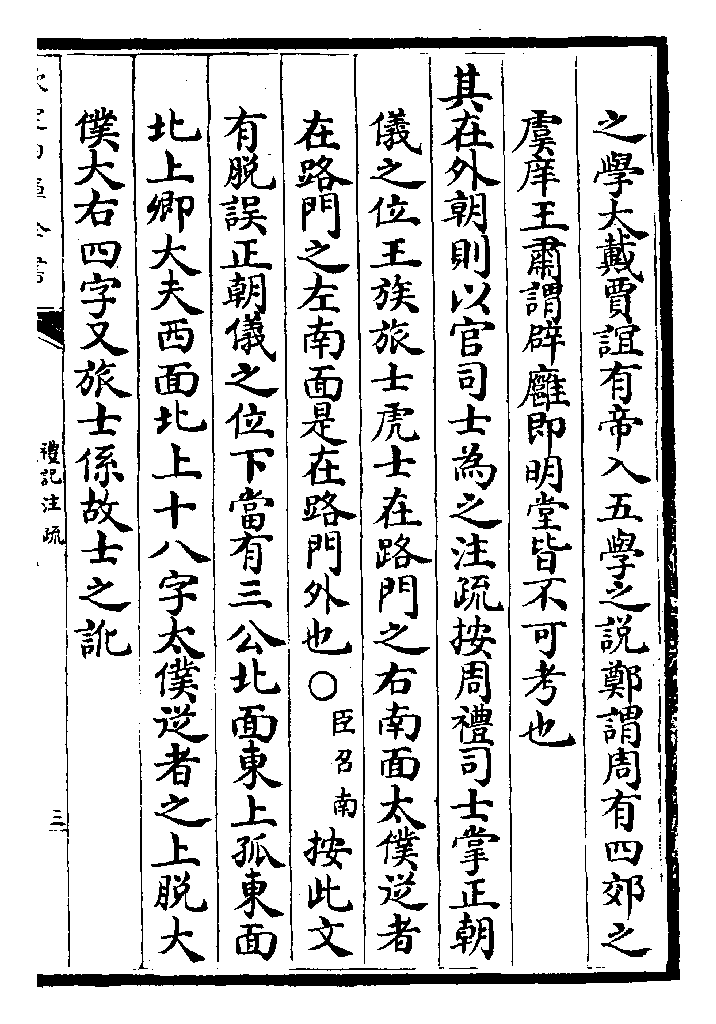 之學大戴賈誼有帝入五學之說鄭謂周有四郊之
虞庠王肅謂辟廱即明堂皆不可考也
其在外朝則以官司士為之注疏按周禮司士掌正朝
儀之位王族旅士虎士在路門之右南面太僕從者
在路門之左南面是在路門外也○臣召南按此文
有脫誤正朝儀之位下當有三公北面東上孤東面
北上卿大夫西面北上十八字太僕從者之上脫大
僕大右四字又旅士係故士之訛
禮記注疏
三